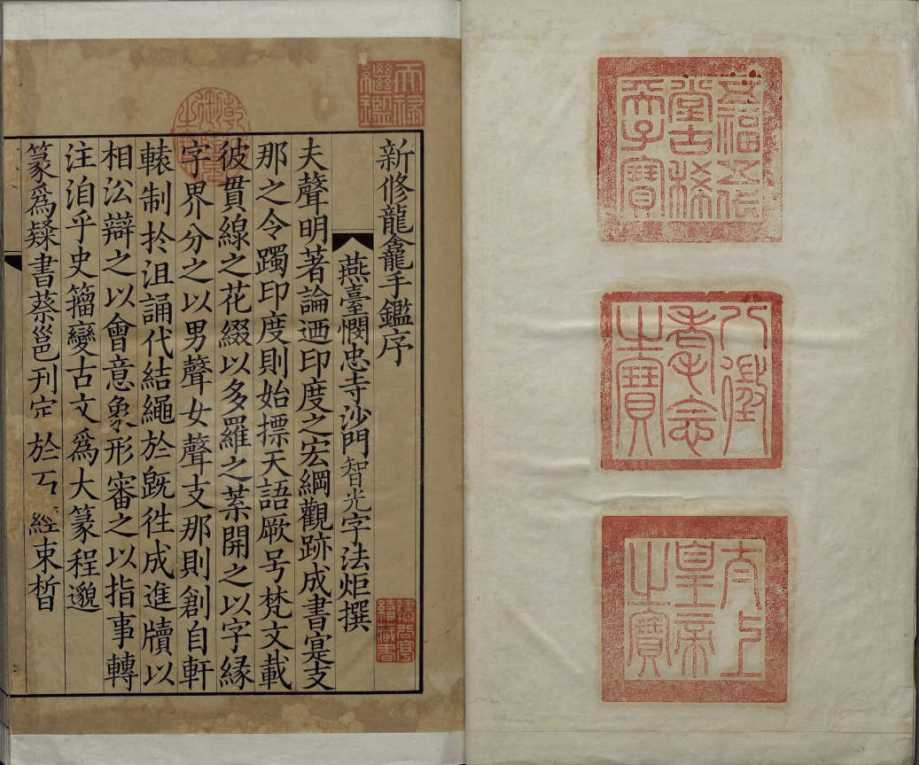 五福五代
堂古稀
天子寶
八徵
耄念
之寶
太上
皇帝
之寶
天祿
繼鑑
乾隆
御覽
之寶
新修龍龕手鑑序
燕臺憫忠寺沙門智光字法炬撰
夫聲明著論迺印度之宏綱觀跡成書寔支
那之令躅印度則始摽天語厥号梵文載
彼貫線之花綴以多羅之葉開之以字緣
字界分之以男聲女聲支那則創自軒
轅制扵沮誦代結繩於既徃成進牘以
相沿辯之以會意象形審之以指事轉
注洎乎史籀變古文爲大篆程邈
篆爲隸書蔡邕刊定於 經束晳